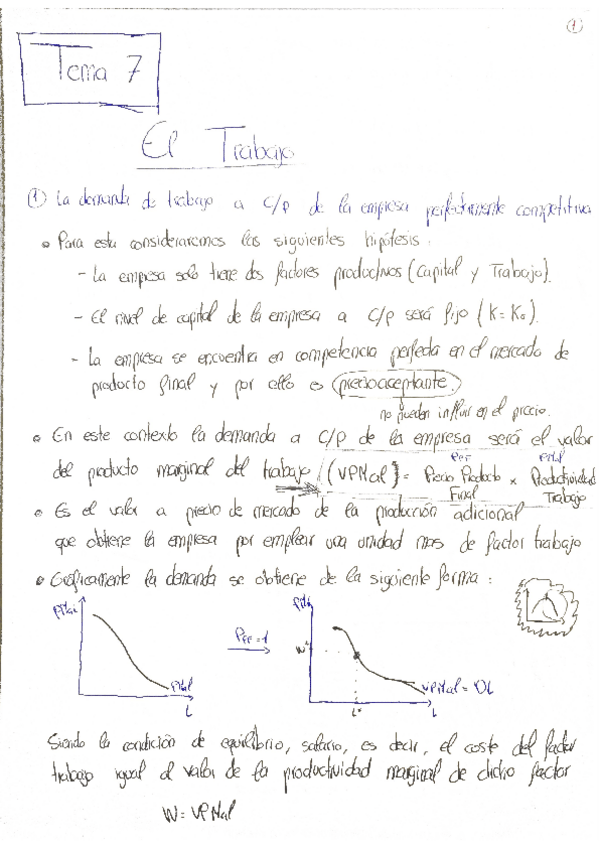 1
Tema 7
El Trabajo
① La demanda de trabajo a C/p de la empresa perfectamente competitiva
• Para esta consideraremos las siguientes hipótesis:
- La empresa solo tiene dos factores productivos (Capital y Trabajo).
- El nivel de capital de la empresa a C/p será fijo (K = K₀).
- La empresa se encuentra en competencia perfecta en el mercado de
producto final y por ello es precioaceptante.
no pueden influir en el precio.
• En este contexto la demanda a C/p de la empresa será el valor
del producto marginal del trabajo (VPMaL) = Precio Producto Final x Productividad Trabajo
• Es el valor a precio de mercado de la producción adicional
que obtiene la empresa por emplear una unidad mas de factor trabajo
• Gráficamente la demanda se obtiene de la siguiente forma:
PMaL
PMaL
L
W*
L*
VPMaL = DL
L
Siendo la condición de equilibrio, salario, es decir, el coste del factor
trabajo igual al valor de la productividad marginal de dicho factor
W = VPMaL